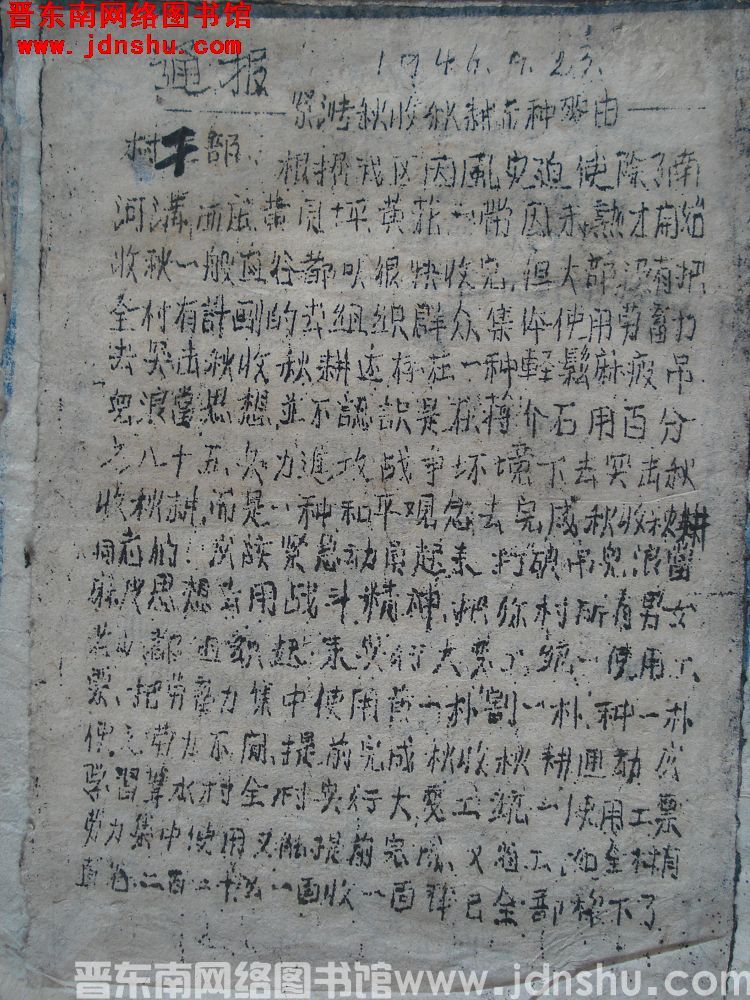 晋东南网络图书馆
www.jdnshu.com
通报 1946.9.23.
秋收秋耕 种 由
村干部:根据我区因風灾迫使除了南
河溝 黄 坪黄花一带因未熟才開始
收秋一般直谷都以很快收完,但大部没有把
全村有計画的去組织群众集体使用劳畜力
去突击秋收秋耕还存在一种輕鬆麻疲吊
兒浪當思想並不認識是在蒋介石用百分
之八十五 力進攻战争环境下去突击秋
收秋耕,而是一种和平观念去完成秋收秋耕
紧急动員起来打破吊兒浪當
麻皮思想 用战斗精神,把你村所有男女
老少都 起来实行大变工統一使用工
票、把劳畜力集中使用 一朴割一朴,种一朴
使之劳力不 ,提前完成秋收秋耕 动
学習 水村全村实行大变工統一使用工票
劳力集中使用又能提前完成、又省工,如全村有
直谷二百二十 一面收一面 已全部 下了
晋东南网络图书馆www.jdnshu.com